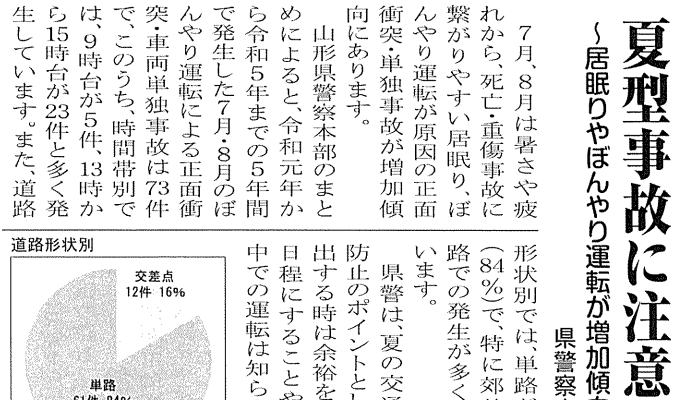 夏型事故に注意
～居眠りやぼんやり運転が増加傾向
県警察
7月、8月は暑さや疲
れから、死亡・重傷事故に
繋がりやすい居眠り、ぼ
んやり運転が原因の正面
衝突・単独事故が増加傾
向にあります。
山形県警察本部のまと
めによると、令和元年か
ら令和5年までの5年間
で発生した7月・8月のぼ
んやり運転による正面衝
突・車両単独事故は73件
で、このうち、時間帯別で
は、9時台が5件、13時か
ら15時台が23件と多く発
生しています。また、道路
形状別では、単路が
（84％）で、特に郊
路での発生が多く
います。
県警は、夏の交通
防止のポイントとし
出する時は余裕を
日程にすることや
中での運転は知ら
道路形状別
交差点
12件 16%
単路
61件 84%